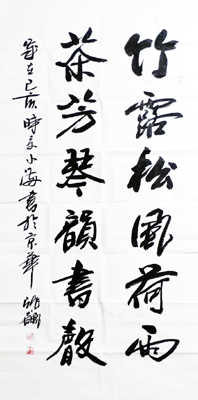 竹露松風荷雨
茶芳琴韻書聲
歲在己亥時立小海書於京華